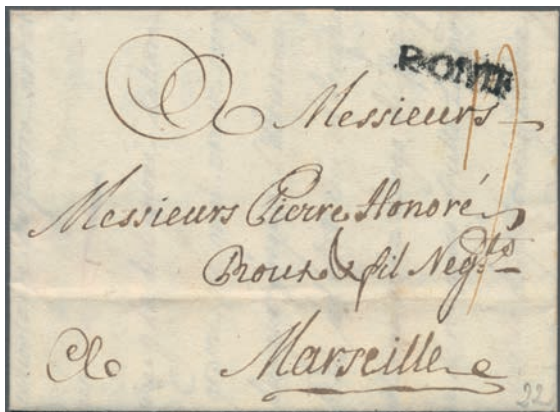 ROME
A Messieurs
Messieurs Pierre Honoré
Roux & fil Negts
A Marseille
22